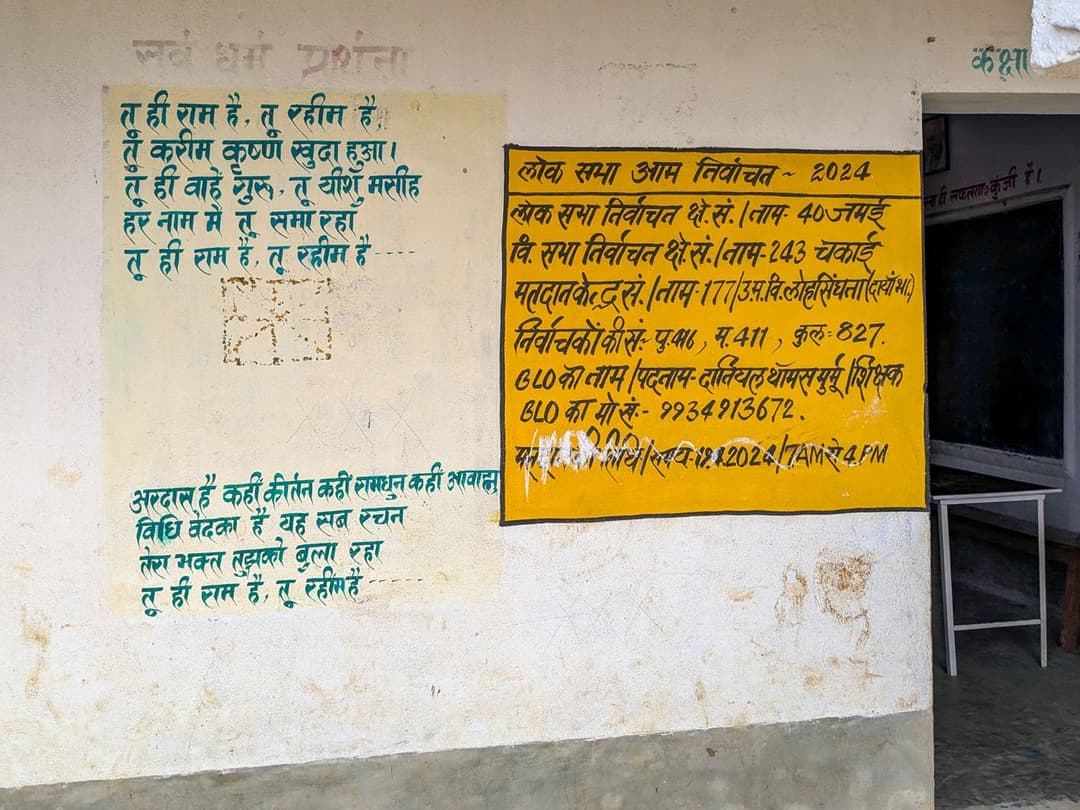 सर्व धर्म प्रार्थना
तू ही राम है, तू रहीम है,
तू करीम कृष्ण खुदा हुआ।
तू ही वाहे गुरू, तू यीशु मसीह
हर नाम में तू समा रहा
तू ही राम है, तू रहीम है------
अरदास है कहीं कीर्तन कहीं रामधुन कहीं आवाह्न
विधि वेदका है यह सब रचन
तेरा भक्त तुझको बुला रहा
तू ही राम है, तू रहीम है------
लोक सभा आम निर्वाचन ~ 2024
लोक सभा निर्वाचन क्षे.सं./नाम- 40 जमुई
वि. सभा निर्वाचन क्षे.सं./नाम-243 चकाई
मतदान केन्द्र सं./नाम-177/उ.म.वि.लोहसिंघना(दायाँ भा.)
निर्वाचकों की सं:- पु.416, म.411, कुल=827.
BLO का नाम/पदनाम-दानियल थॉमस मुर्मू/शिक्षक
BLO का मो.सं:- 9934913672.
तिथि/समय 2024/7AM से 4PM
कक्षा
सफलता कुंजी है।